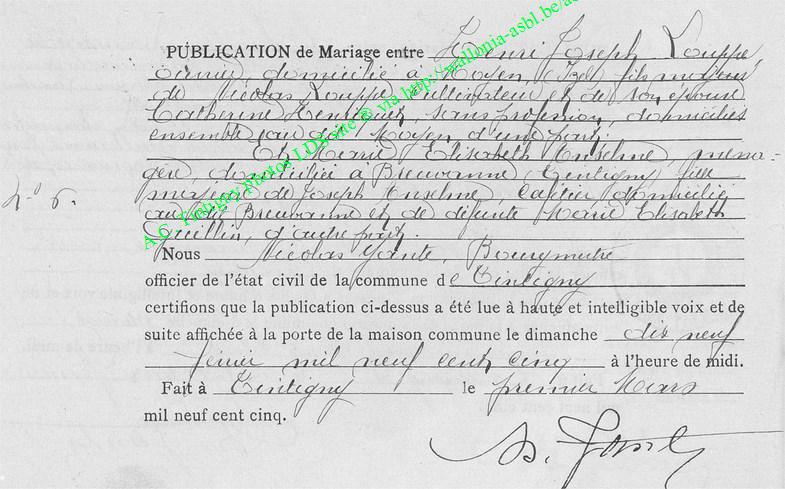 PUBLICATION de Mariage entre Henri Joseph Louppe
ouvrier, domicilié à Moyen, Izel fils majeur
de Nicolas Louppe, cultivateur et de son épouse
Catherine sans profession, domiciliés
ensemble au dit Moyen, d'une part.
Et Marie Elisabeth Anselme, ména-
gère, domiciliée à Breuvanne, Tintigny fille
majeure de Joseph Anselme, domicilié
au dit Breuvanne et de défunte Marie Elisabeth
d'autre part.
N° 6.
Nous Nicolas Yante, Bourgmestre
officier de l'état civil de la commune de Tintigny
certifions que la publication ci-dessus a été lue à haute et intelligible voix et de
suite affichée à la porte de la maison commune le dimanche dix neuf
février mil neuf cent cinq à l'heure de midi.
Fait à Tintigny le premier Mars
mil neuf cent cinq.
A.G. Tintigny photos LDS site © via http://wallonia-asbl.be/